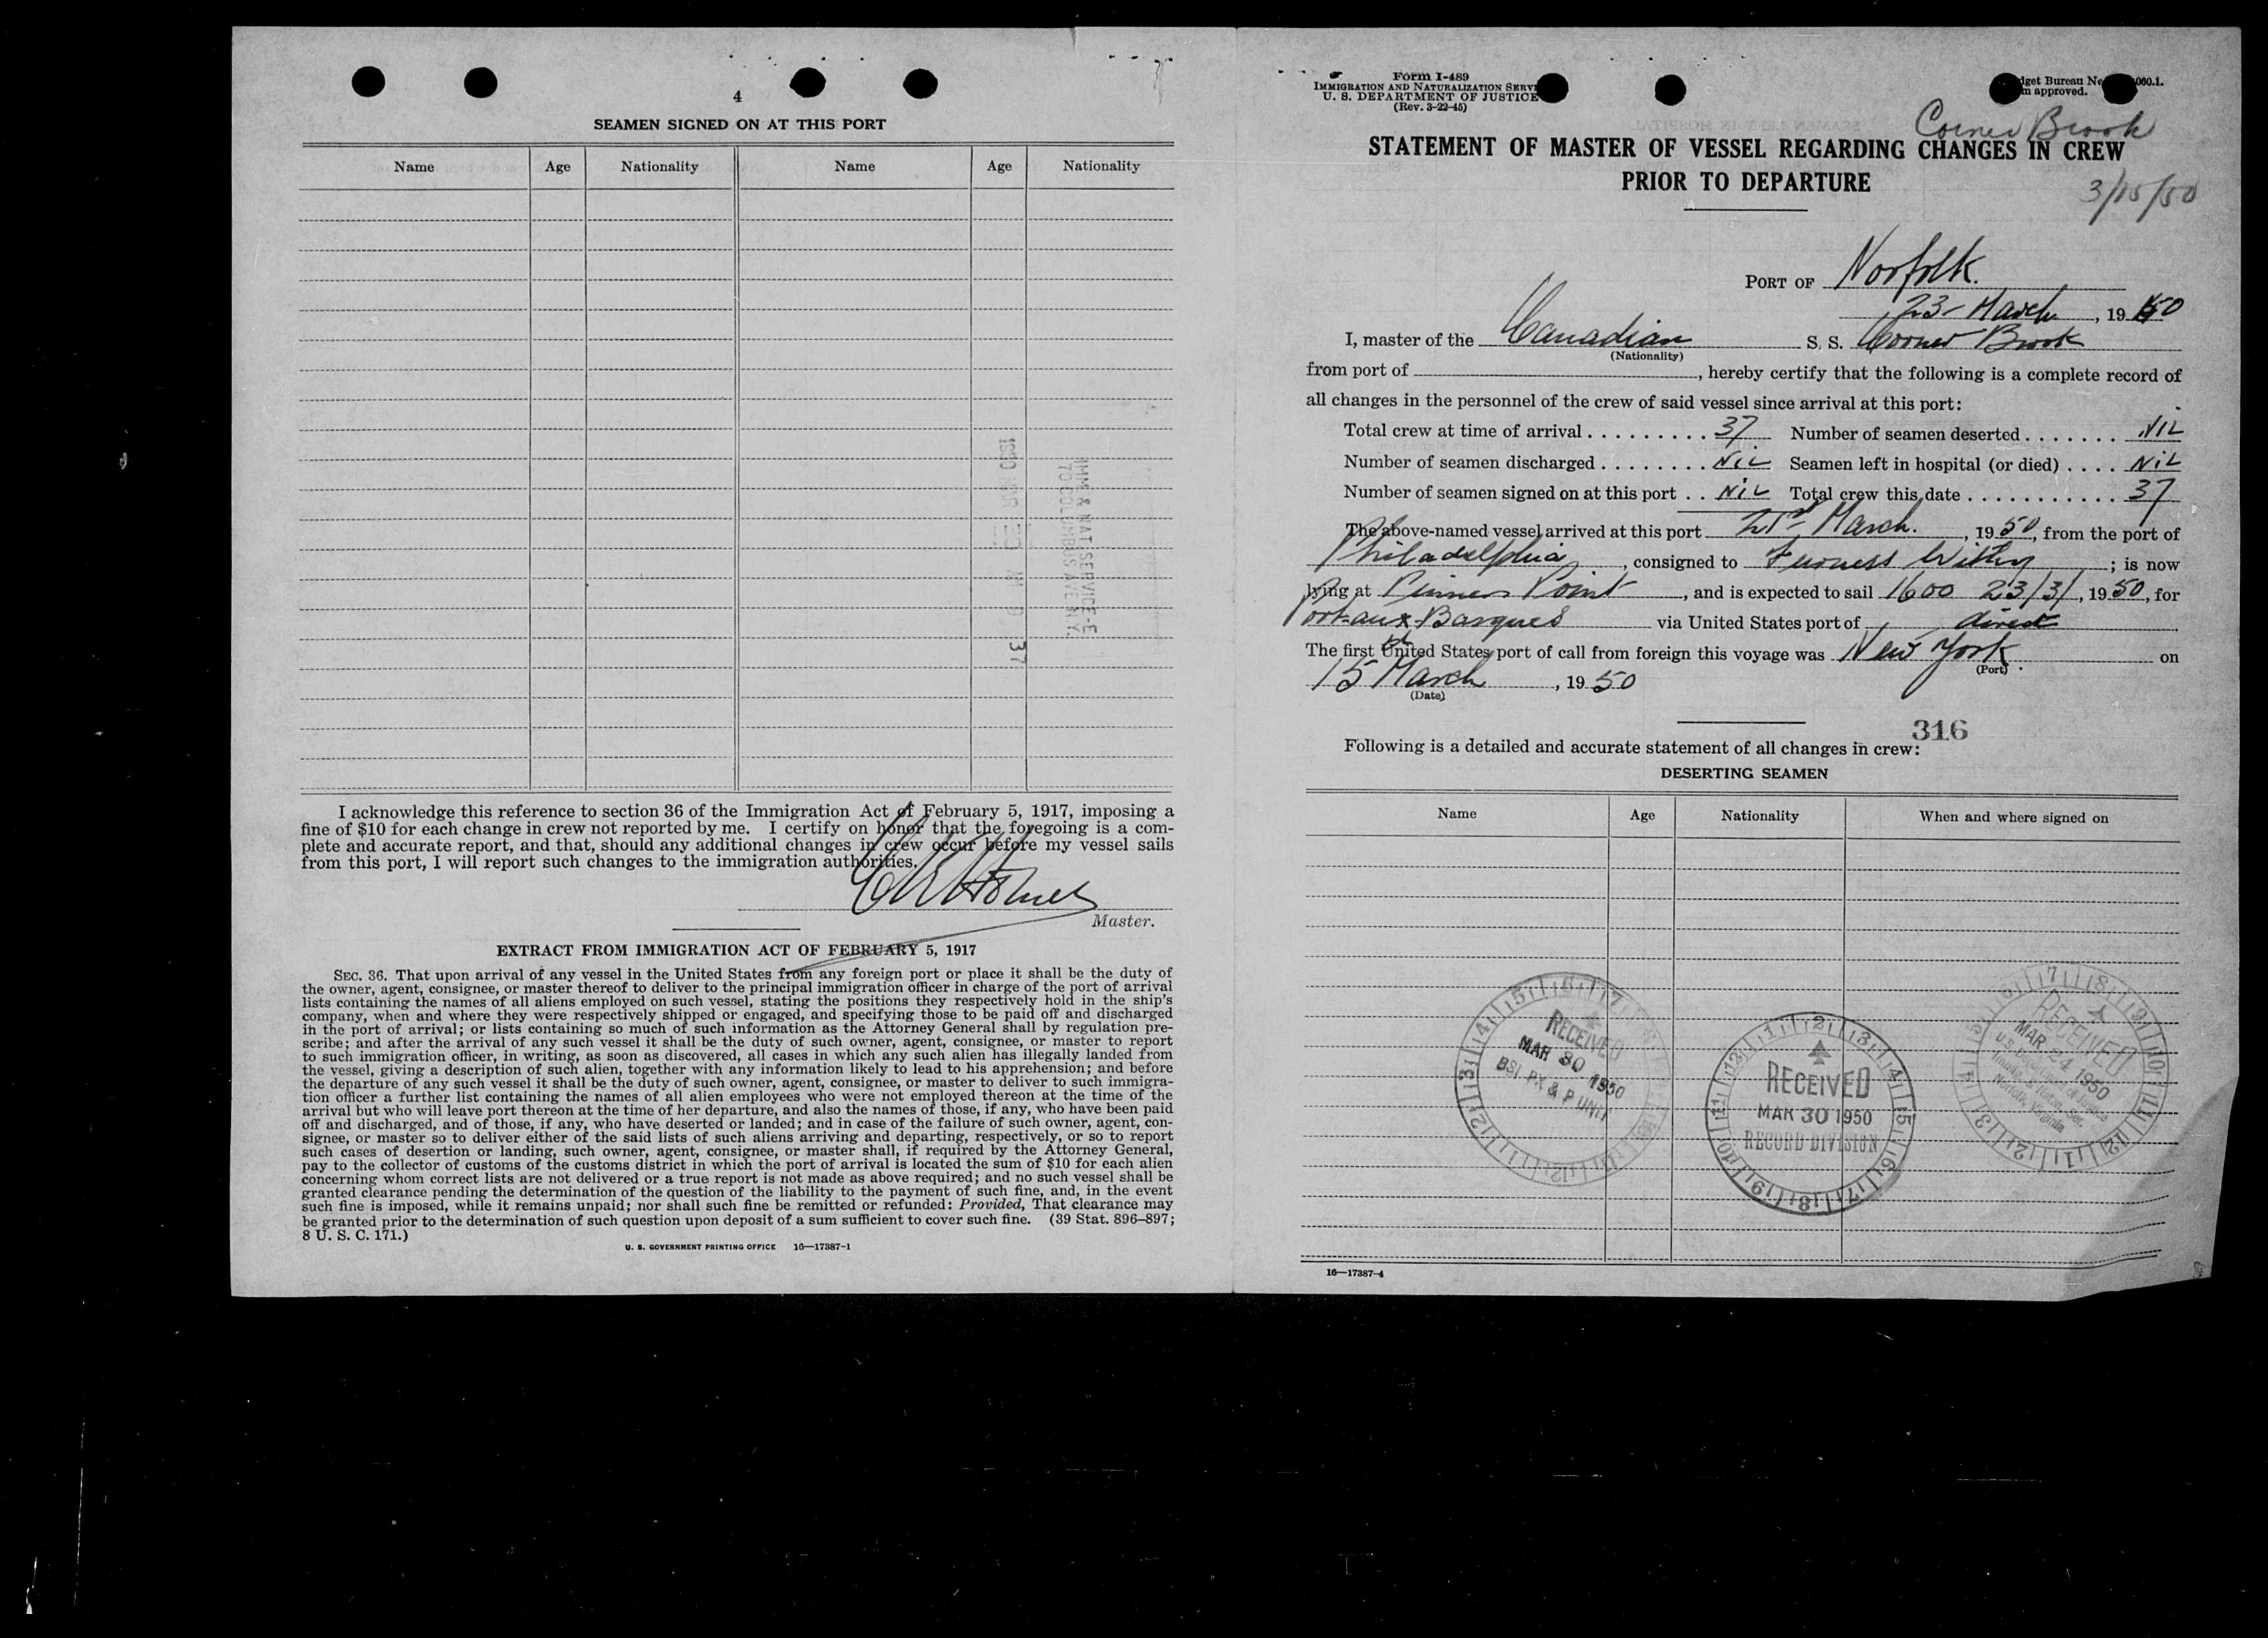 4
SEAMEN SIGNED ON AT THIS PORT
Name Age Nationality Name Age Nationality
IMM & NAT SERVICE-E
70 COLUMBUS AVE N.Y.
I acknowledge this reference to section 36 of the Immigration Act of February 5, 1917, imposing a
fine of $10 for each change in crew not reported by me. I certify on honor that the foregoing is a com-
plete and accurate report, and that, should any additional changes in crew occur before my vessel sails
from this port, I will report such changes to the immigration authorities.
Holmes
Master.
EXTRACT FROM IMMIGRATION ACT OF FEBRUARY 5, 1917
SEC. 36. That upon arrival of any vessel in the United States from any foreign port or place it shall be the duty of
the owner, agent, consignee, or master thereof to deliver to the principal immigration officer in charge of the port of arrival
lists containing the names of all aliens employed on such vessel, stating the positions they respectively hold in the ship's
company, when and where they were respectively shipped or engaged, and specifying those to be paid off and discharged
in the port of arrival; or lists containing so much of such information as the Attorney General shall by regulation pre-
scribe; and after the arrival of any such vessel it shall be the duty of such owner, agent, consignee, or master to report
to such immigration officer, in writing, as soon as discovered, all cases in which any such alien has illegally landed from
the vessel, giving a description of such alien, together with any information likely to lead to his apprehension; and before
the departure of any such vessel it shall be the duty of such owner, agent, consignee, or master to deliver to such immigra-
tion officer a further list containing the names of all alien employees who were not employed thereon at the time of the
arrival but who will leave port thereon at the time of her departure, and also the names of those, if any, who have been paid
off and discharged, and of those, if any, who have deserted or landed; and in case of the failure of such owner, agent, con-
signee, or master so to deliver either of the said lists of such aliens arriving and departing, respectively, or so to report
such cases of desertion or landing, such owner, agent, consignee, or master shall, if required by the Attorney General,
pay to the collector of customs of the customs district in which the port of arrival is located the sum of $10 for each alien
concerning whom correct lists are not delivered or a true report is not made as above required; and no such vessel shall be
granted clearance pending the determination of the question of the liability to the payment of such fine, and, in the event
such fine is imposed, while it remains unpaid; nor shall such fine be remitted or refunded: Provided, That clearance may
be granted prior to the determination of such question upon deposit of a sum sufficient to cover such fine. (39 Stat. 896–897;
8 U. S. C. 171.)
U. S. GOVERNMENT PRINTING OFFICE 16—17387-1
Form I-489
IMMIGRATION AND NATURALIZATION SERVI
U. S. DEPARTMENT OF JUSTICE
(Rev. 3-22-45)
dget Bureau No 060.1.
m approved.
Corner Brook
STATEMENT OF MASTER OF VESSEL REGARDING CHANGES IN CREW
PRIOR TO DEPARTURE
3/15/50
PORT OF Norfolk.
23- March, 19 50
I, master of the Canadian S. S. Corner Brook
(Nationality)
from port of , hereby certify that the following is a complete record of
all changes in the personnel of the crew of said vessel since arrival at this port:
Total crew at time of arrival . . . . . . . . . 37 Number of seamen deserted . . . . . . . Nil
Number of seamen discharged . . . . . . . . Nil Seamen left in hospital (or died) . . . . Nil
Number of seamen signed on at this port . . Nil Total crew this date . . . . . . . . . . . 37
The above-named vessel arrived at this port 21st March. , 19 50, from the port of
Philadelphia , consigned to Furness Withy ; is now
lying at Pinners Point , and is expected to sail 1600 23/3/, 19 50, for
Port-aux-Basques via United States port of direct
The first United States port of call from foreign this voyage was New York. on
(Port)
15 March , 19 50
(Date)
316
Following is a detailed and accurate statement of all changes in crew:
DESERTING SEAMEN
Name Age Nationality When and where signed on
RECEIVED
MAR 30 1950
BSI PX & P UNIT
RECEIVED
MAR 30 1950
RECORD DIVISION
RECEIVED
MAR 24 1950
U.S. Department of Justice
Immig. & Natur. Ser.
Norfolk, Virginia
16—17387-4